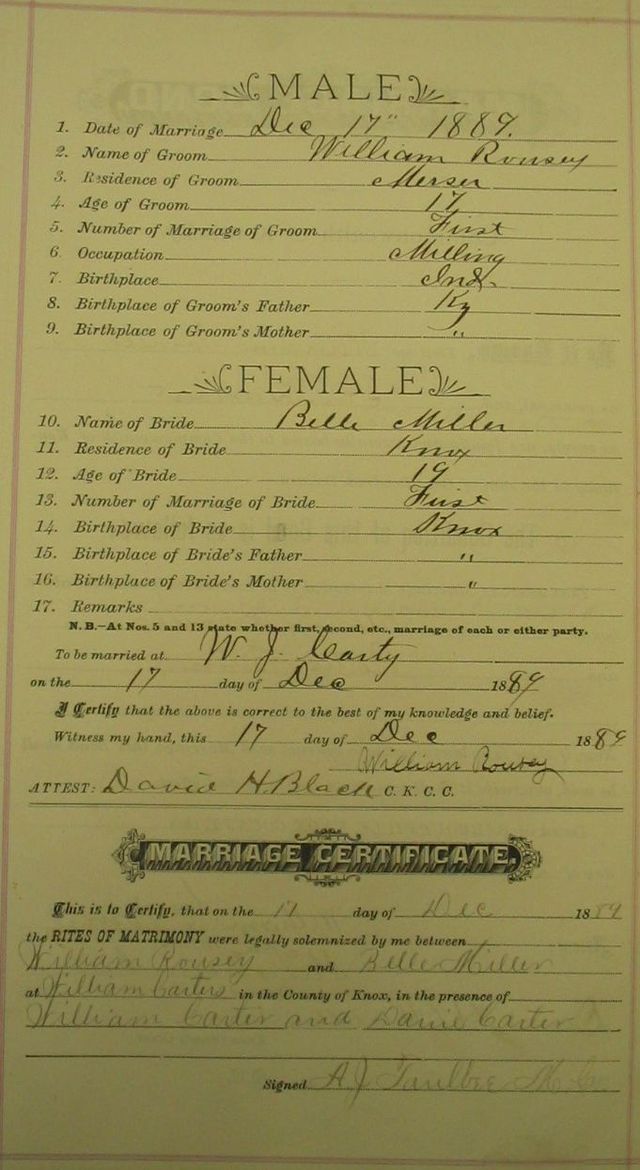 MALE
1. Date of Marriage Dec 17" 1889.
2. Name of Groom William Rousey
3. Residence of Groom Merser
4. Age of Groom 17
5. Number of Marriage of Groom First
6. Occupation Milling
7. Birthplace Ind.
8. Birthplace of Groom's Father Ky
9. Birthplace of Groom's Mother "
FEMALE
10. Name of Bride Belle Miller
11. Residence of Bride Knox
12. Age of Bride 19
13. Number of Marriage of Bride First
14. Birthplace of Bride Knox
15. Birthplace of Bride's Father "
16. Birthplace of Bride's Mother "
17. Remarks
N. B.—At Nos. 5 and 13 state whether first, second, etc., marriage of each or either party.
To be married at W. J. Carty
on the 17 day of Dec 1889
I Certify that the above is correct to the best of my knowledge and belief.
Witness my hand, this 17 day of Dec 1889
William Rousey
ATTEST: David H Black C. K. C. C.
MARRIAGE CERTIFICATE.
This is to Certify, that on the 17 day of Dec 1889
the RITES OF MATRIMONY were legally solemnized by me between
William Rousey and Belle Miller
at William Carters in the County of Knox, in the presence of
William Carter and Carter
Signed A. J.